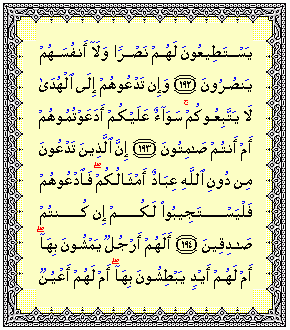 يَسْتَطِيعُونَ لَهُمْ نَصْرًا وَلَآ أَنفُسَهُمْ
يَنصُرُونَ ﴿١٩٢﴾ وَإِن تَدْعُوهُمْ إِلَى ٱلْهُدَىٰ
لَا يَتَّبِعُوكُمْ ۚ سَوَآءٌ عَلَيْكُمْ أَدَعَوْتُمُوهُمْ
أَمْ أَنتُمْ صَٰمِتُونَ ﴿١٩٣﴾ إِنَّ ٱلَّذِينَ تَدْعُونَ
مِن دُونِ ٱللَّهِ عِبَادٌ أَمْثَالُكُمْ ۖ فَٱدْعُوهُمْ
فَلْيَسْتَجِيبُوا۟ لَكُمْ إِن كُنتُمْ
صَٰدِقِينَ ﴿١٩٤﴾ أَلَهُمْ أَرْجُلٌ يَمْشُونَ بِهَآ ۖ
أَمْ لَهُمْ أَيْدٍ يَبْطِشُونَ بِهَآ ۖ أَمْ لَهُمْ أَعْيُنٌ